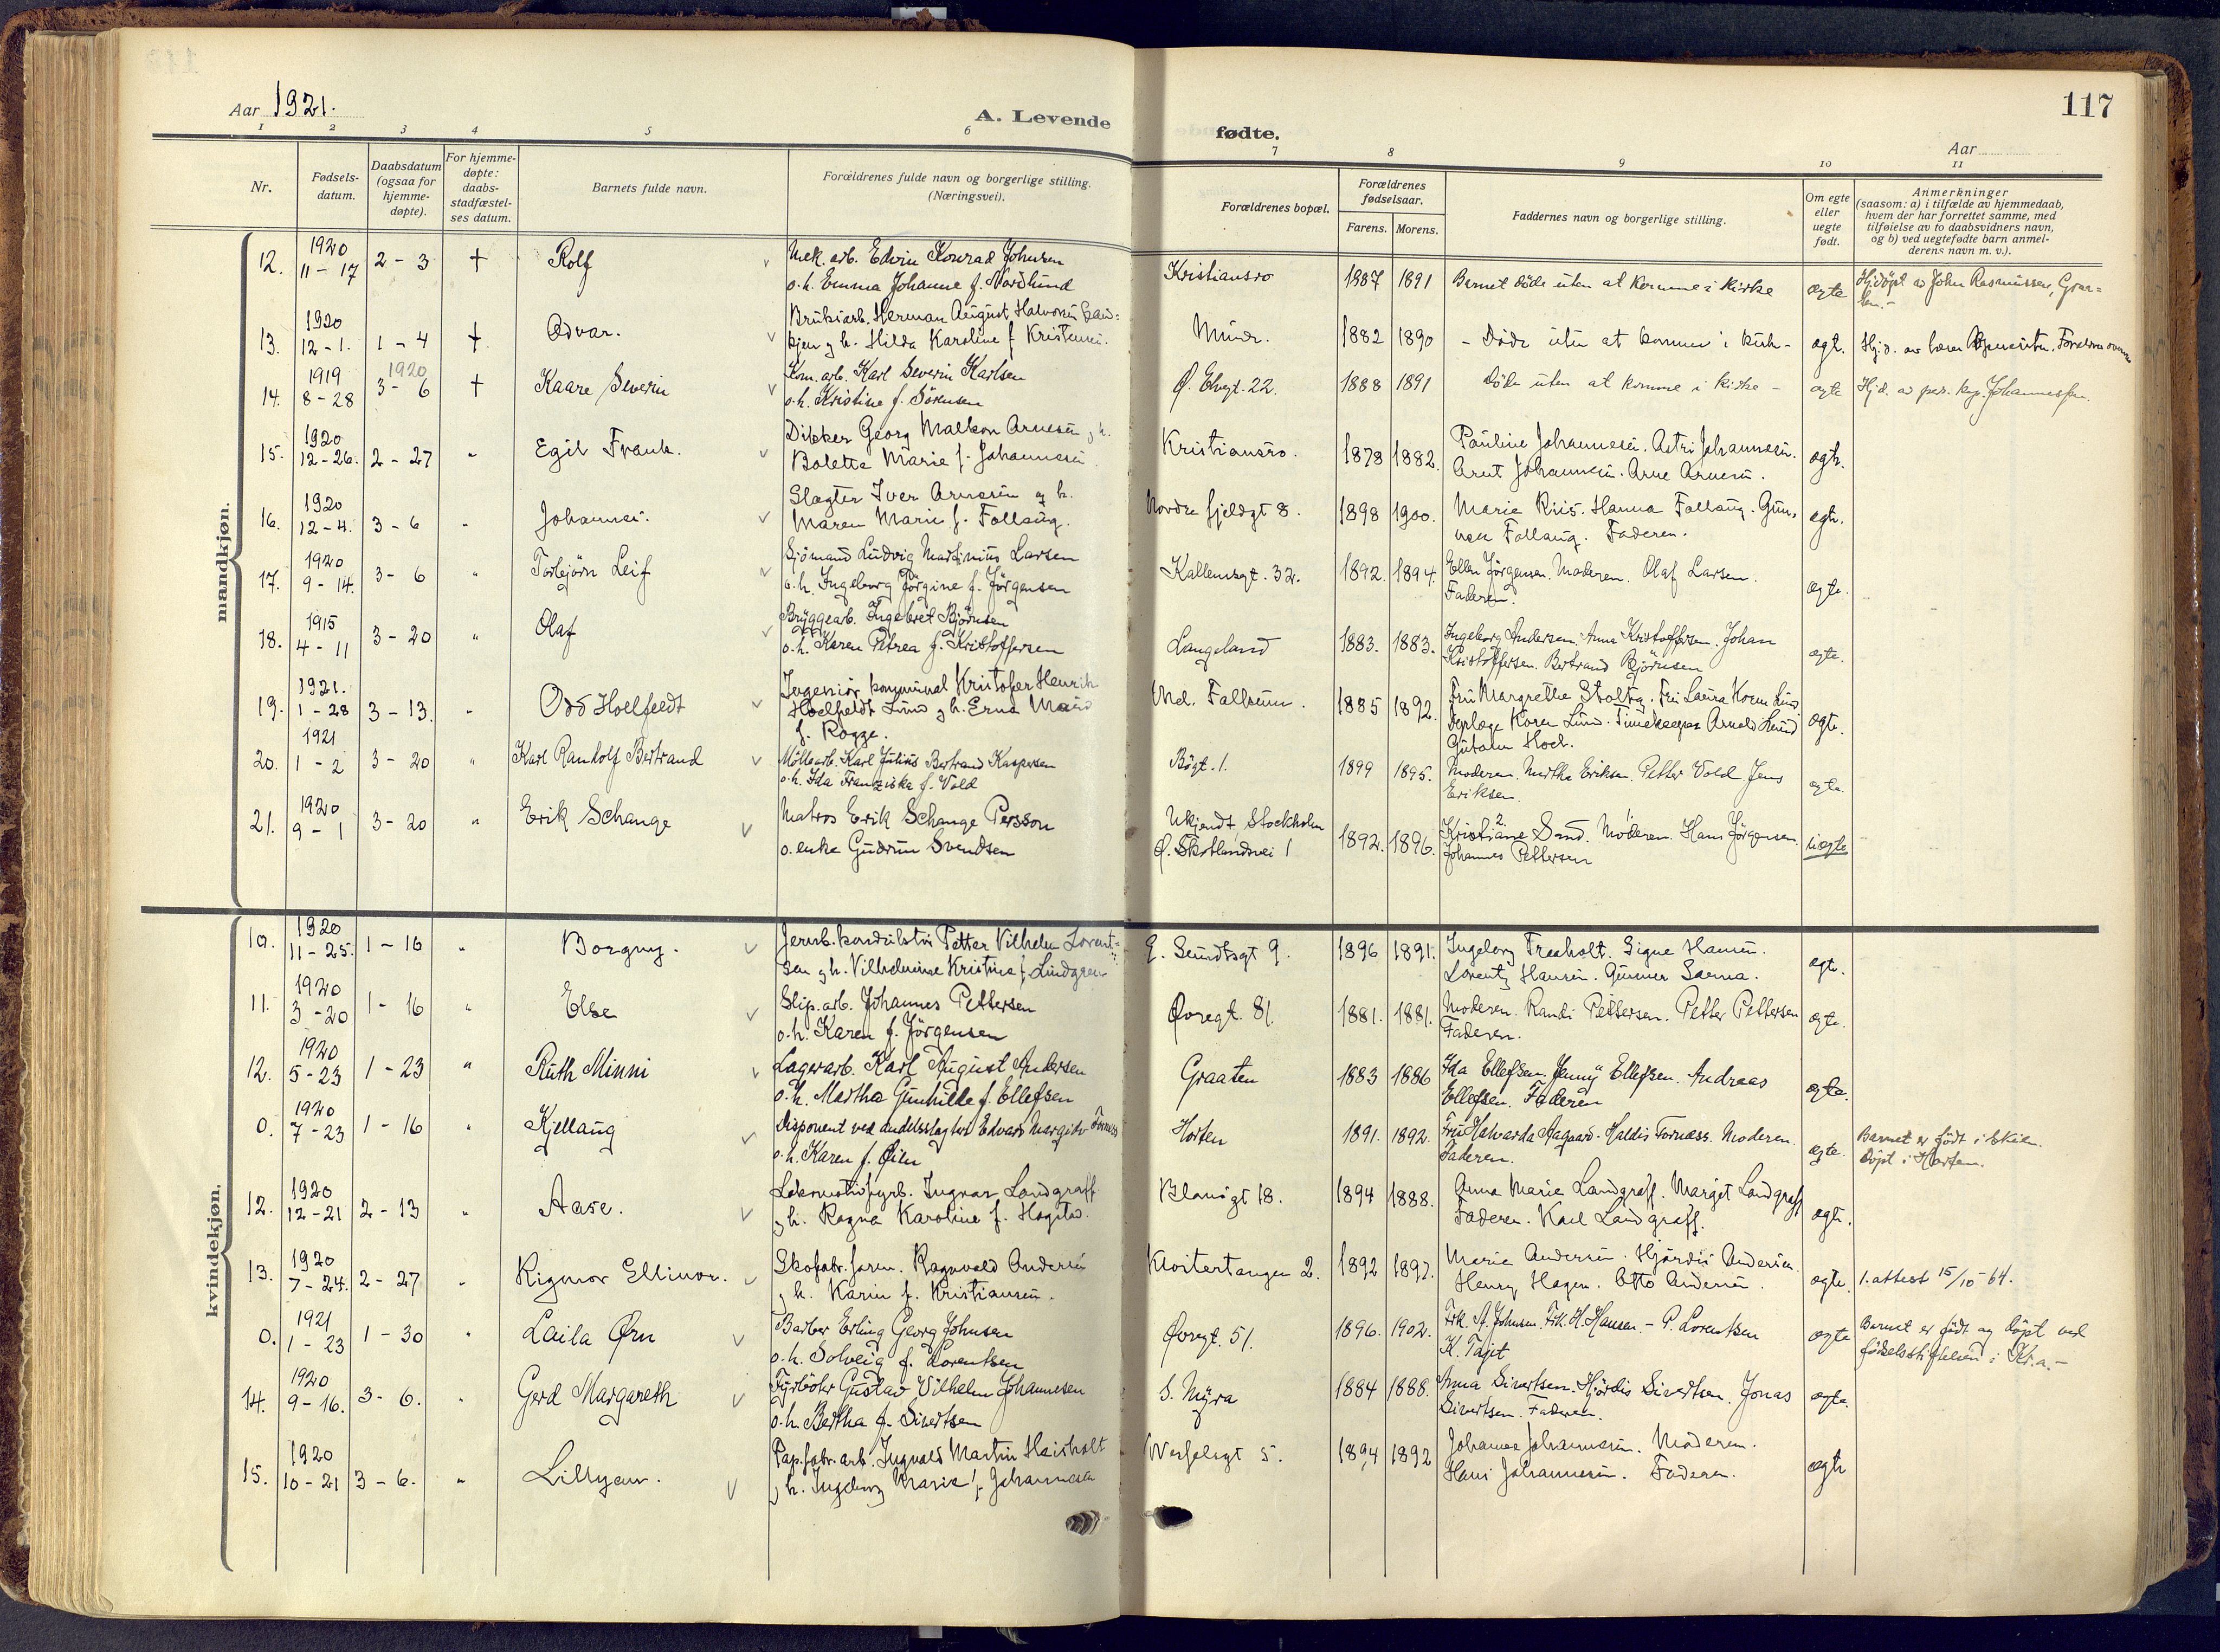 117
Aar 1921.
A. Levende fødte.
Aar
1 2 3 4 5 6 7 8 9 10 11
Nr.
Fødsels-
datum.
Daabsdatum
(ogsaa for
hjemme-
døpte).
For hjemme-
døpte:
daabs-
stadfæstel-
ses datum.
Barnets fulde navn.
Forældrenes fulde navn og borgerlige stilling.
(Næringsvei).
Forældrenes bopæl.
Forældrenes
fødselsaar.
Farens. Morens.
Faddernes navn og borgerlige stilling.
Om egte
eller
uegte
født.
Anmerkninger
(saasom: a) i tilfælde av hjemmedaab,
hvem der har forrettet samme, med
tilføielse av to daabsvidners navn,
og b) ved uegtefødte barn anmel-
derens navn m. v.).
mandkjøn.
12. 1920 11-17 2-3 † Rolf
Mek. arb. Edvin Konrad Johnsen
o.h. Emma Johanne f. Nordlund
Kristiansro 1887 1891 Barnet døde uten at komme i kirke ægte
Hjdøpt av John Rasmussen, Graa-
ten.-
13. 1920 12-1. 1-4 † Odvar.
Bruksarb. Herman August Halvorsen
og h. Hilda Karoline f. Kristensen.
1882 1890 - Døde uten at komme i kirk- egt.
14. 1919 8-28 1920 3-6 † Kaare Severin
Kom. arb. Karl Severin Karlsen
o.h. Kristine f. Sörensen
Ø. Elvegt. 22. 1888 1891 Døde uten at komme i kirke - ægte
Hjd. av pers. kap. Johannessen.
15. 1920 12-26. 2-27 " Egil Frank.
Georg Arnesen og h.
Bolette Marie f. Johannesen
Kristiansro. 1878 1882. Pauline Johannesen. Astri Johannesen.
Arnt Johannesen. Arne Arnesen. egte.
16. 1920 12-4. 3-6 " Johannes.
Slagter Iver Arnesen og h.
Maren Marie f. Follaug.
Nordre fjeldgt 8. 1898 1900. Marie Riis. Hanna Follaug. Gun-
Follaug. Faderen. egte.
17. 1920 9-14. 3-6 " Torbjørn Leif
Sjömand Ludvig Martinius Larsen
o.h. Ingeborg Jörgine f. Jörgensen
32. 1892. 1894. Ellen Jörgensen. Moderen. Olaf Larsen.
Faderen. ægte.
18. 1915 4-11 3-20 " Olaf
Bryggearb. Ingebret Björnsen
o.h. Karen Petrea f. Kristoffersen
Langeland 1883. 1883. Ingeborg Andersen. Anna Kristoffersen. Johan
Kristoffersen. Bertrand Björnsen ægte.
19. 1921. 1-28 3-13. " Odd Hoelfeldt
Ingeniör, kommunal Kristofer Henrik
Hoelfeldt Lund og h. Erna
f. Rogge.
Nd. Falkum. 1885 1892. Fru Margrethe Stoltz. Fru Laura Koren Lund
Koren Lund. Arnold Lund
Hoel. egte.
20. 1921 1-2 3-20 " Karl Randolf Bertrand
Möllearb. Karl Julius Bertrand Kaspersen
o.h. Ida Franziska f. Vold
Bögt. 1. 1899 1895. Moderen. Martha Eriksen. Petter Vold Jens
Eriksen. ægte.
21. 1920 9-1 3-20 " Erik Schange
Matros Erik Schange Persson
o. enke Gudrun Svendsen
Ukjendt, Stockholm
Ø. Skotlandsvei 1 1892. 1896. Kristiane Sand. Moderen. Hans Jörgensen.
Johannes Pettersen uægte
kvindekjøn.
10. 1920 11-25. 1-16 " Borgny.
Jernb. konduktör Petter Vilhelm Lorent-
sen og h. Vilhelmine Kristine f. Lindgren
G. Sundtsgt 9. 1896 1891. Ingeborg Treeholt. Signe Hansen.
Lorentz Hansen. Gunnar egte.
11. 1920 3-20 1-16 " Else
Slip. arb. Johannes Pettersen
o.h. Karen f. Jörgensen
Øvregt. 81. 1881. 1881. Moderen. Randi Pettersen. Petter Pettersen
Faderen. ægte.
12. 1920 5-23 1-23 " Ruth Minni
Lagerarb. Karl August Andersen
o.h. Martha Gunhilde f. Ellefsen
Graaten 1883 1886 Ida Ellefsen. Jenny Ellefsen. Andreas
Ellefsen. Faderen ægte.
0. 1920 7-23 1-16 " Kjellaug
Disponent ved andelsslagteri Edvard Fornæss
o.h. Karen f. Øien
Horten 1891. 1892. Fru Halvarda Aagaard. Haldis Fornæss. Moderen.
Faderen. ægte.
Barnet er født i Skien.
døpt i Horten.
12. 1920 12-21 2-13 " Aase.
Lokomotivfyrb. Ingvar Landgraff
og h. Ragna Karoline f.
18. 1894 1888. Anna Marie Landgraff. Margit Landgraff
Faderen. Karl Landgraff. egte.
13. 1920 7-24. 2-27 " Rigmor Ellinor.
Skofabr. Ragnvald Andersen
og h. Karin f. Kristiansen.
Klostertangen 2. 1892 1897. Marie Andersen. Hjørdis Andersen.
Henry Hagen. Otto Andersen. egte.
1. attest 15/10-64.
0. 1921 1-23 1-30 " Laila Ørn
Barber Erling Georg Johnsen
o.h. Solveig f. Lorentsen
Øvregt. 51. 1896. 1902. Frk. A. Johnsen. Frk. H. Hansen. - P. Lorentsen
K. Tajet ægte
Barnet er født og døpt ved
fødselsstiftelsen i Kr.a.-
14. 1920 9-16. 3-6. " Gerd Margareth
Fyrböter Gustav Vilhelm Johannesen
o.h. Bertha f. Sivertsen
S. Myra 1884 1888. Anna Sivertsen. Hjördis Sivertsen. Jonas
Sivertsen. Faderen. ægte.
15. 1920 10-21 3-6. " Lillyan.
Pap. fabr. arb. Ingvald Martin Heisholt
og h. Ingeborg Marie f. Johannesen
5. 1894 1892 Johanna Johannesen. Moderen.
Hans Johannesen. Faderen. egte